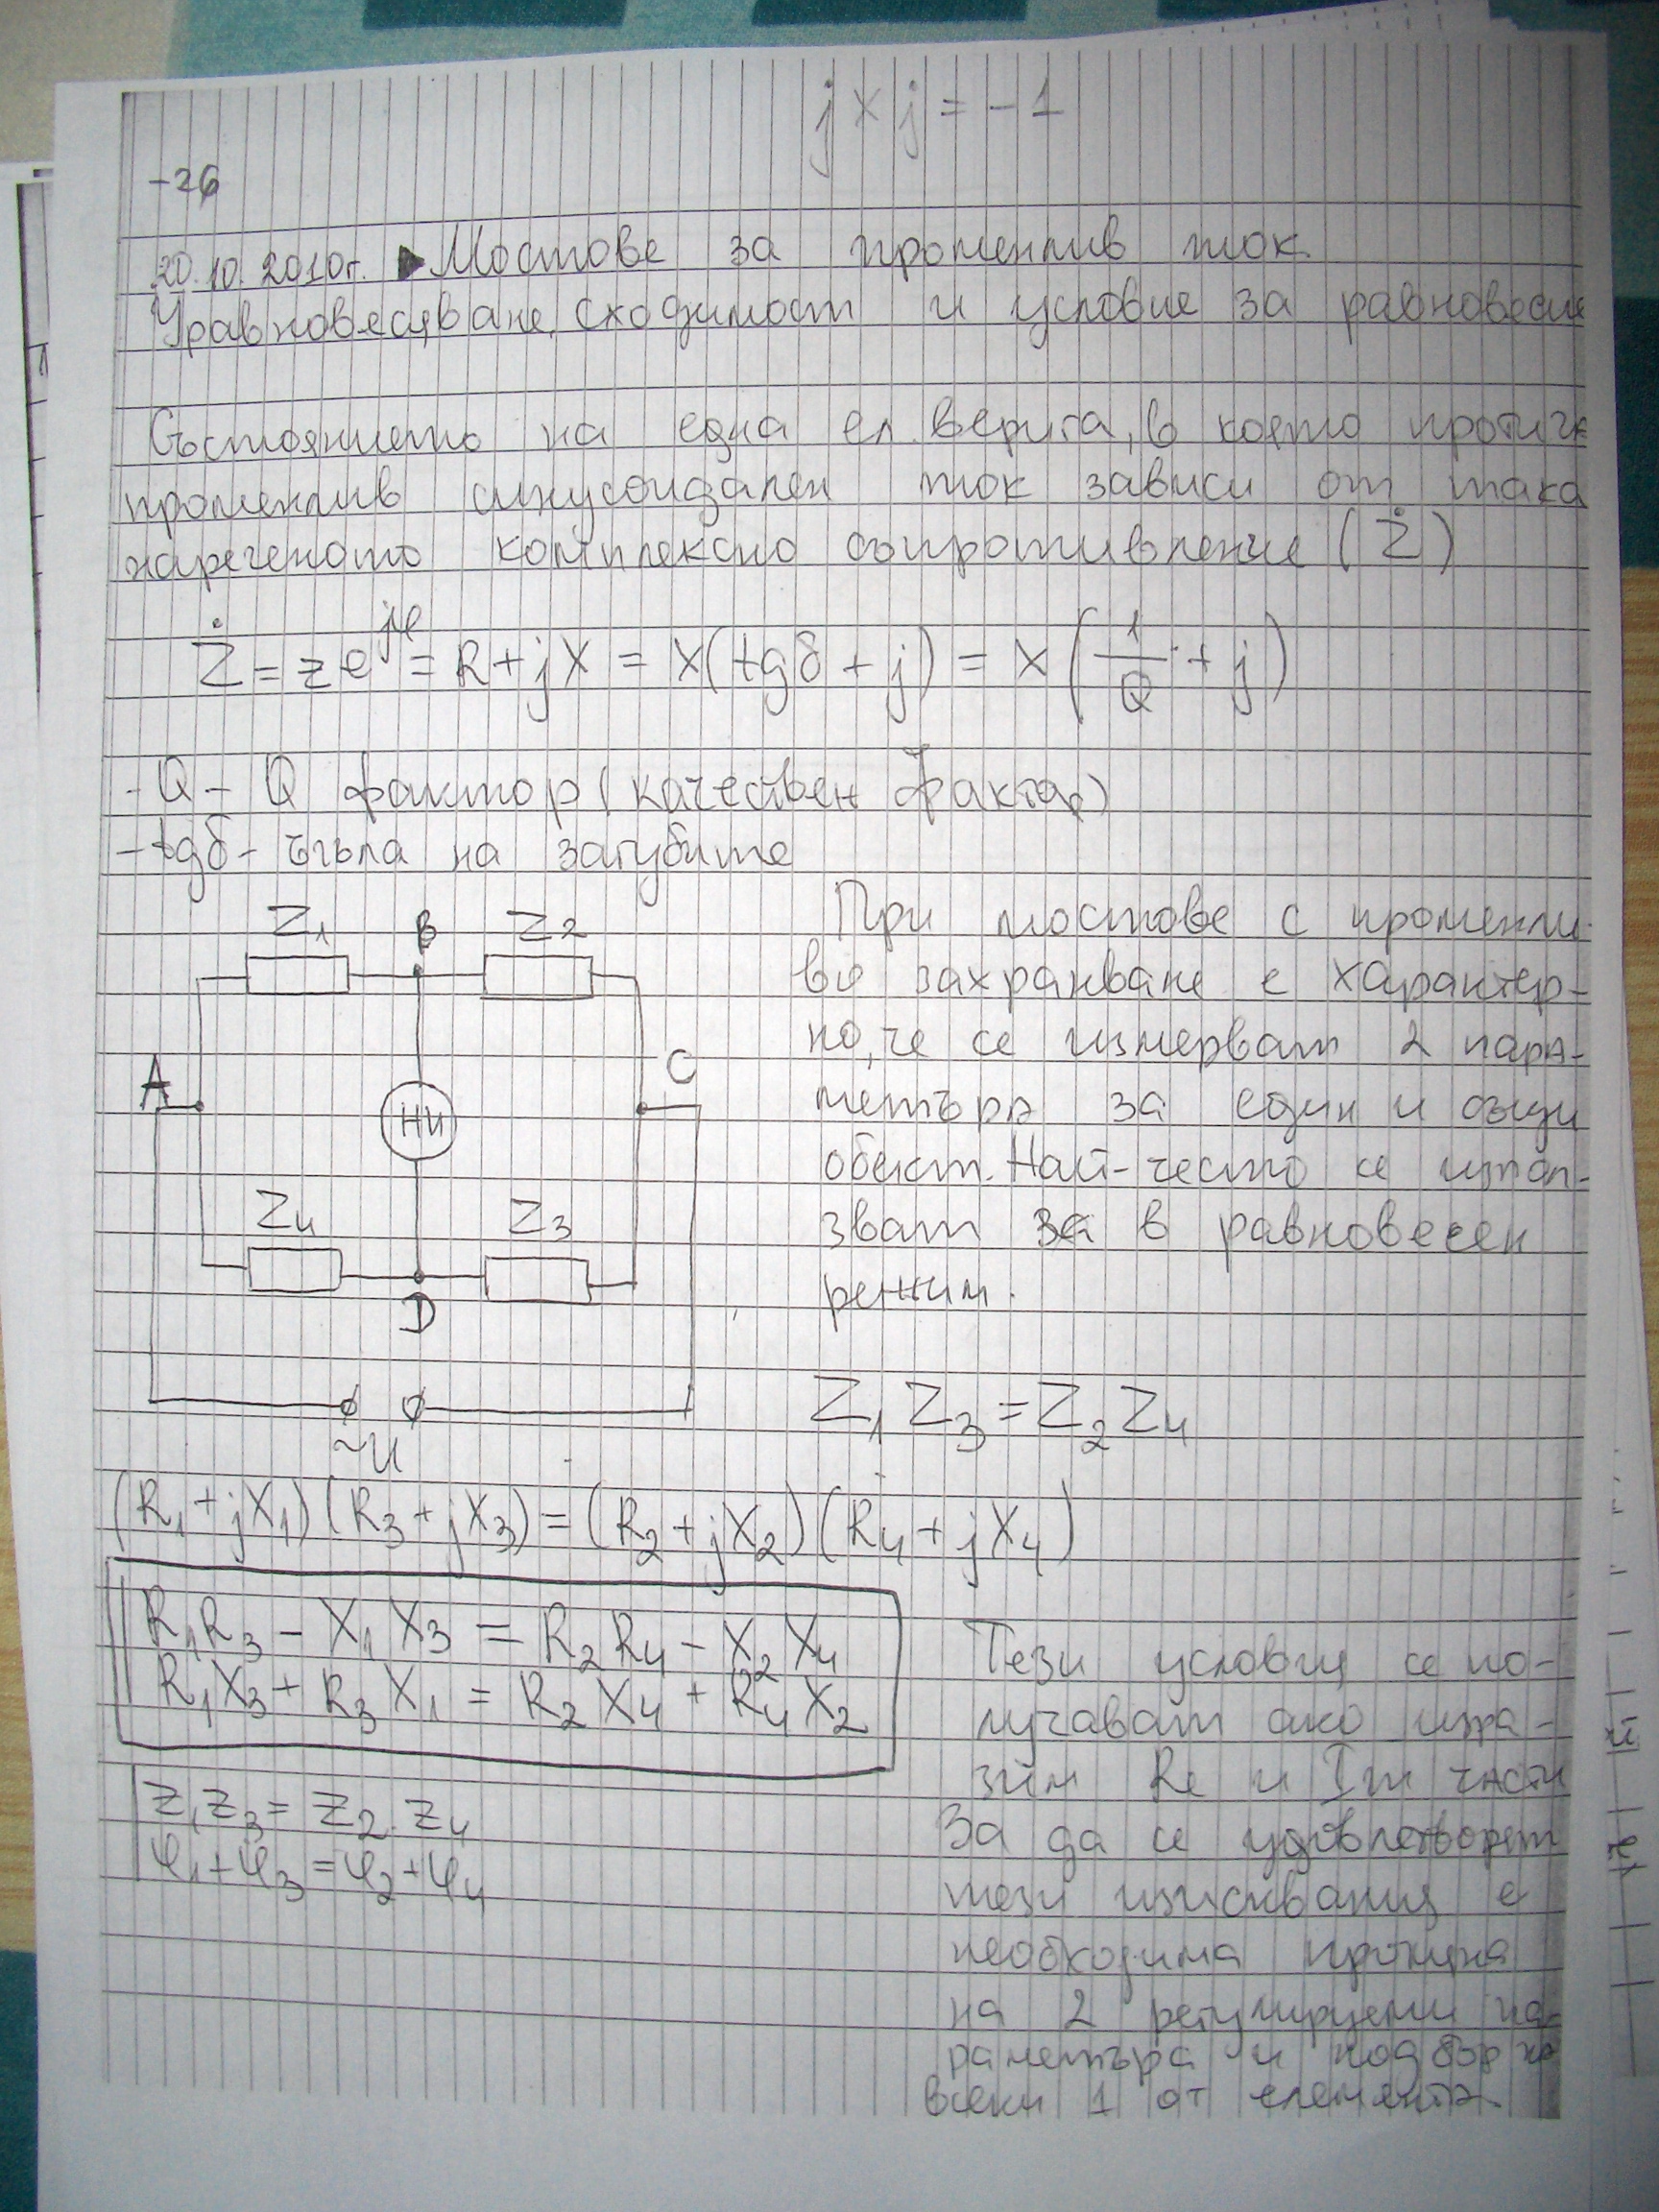 j x j = -1
-26
20.10.2010г. ▶ Мостове за променлив ток.
Уравновесяване, сходимост и условие за равновесие
Състоянието на една ел. верига, в която протича
променлив синусоидален ток зависи от така
нареченото комплексно съпротивление (Ż)
Ż = z e^{jφ} = R + jX = X(tgδ + j) = X(1/Q + j)
- Q - Q фактор (качествен фактор)
- tgδ - ъгъла на загубите
Z₁ B Z₂
A C
НИ
Z₄ Z₃
D
~U
При мостове с променли-
во захранване е характер-
но, че се измерват 2 пара-
метъра за един и същи
обект. Най-често се изпол-
зват за в равновесен
режим.
Z₁ Z₃ = Z₂ Z₄
(R₁ + jX₁)(R₃ + jX₃) = (R₂ + jX₂)(R₄ + jX₄)
R₁R₃ - X₁X₃ = R₂R₄ - X₂X₄
R₁X₃ + R₃X₁ = R₂X₄ + R₄X₂
z₁z₃ = z₂.z₄
φ₁ + φ₃ = φ₂ + φ₄
Тези условия се по-
лучават ако изра-
зим Re и Im части
За да се удовлетворят
тези изисквания е
необходима промяна
на 2 регулируеми па-
раметъра и подбор на
всеки 1 от елементи